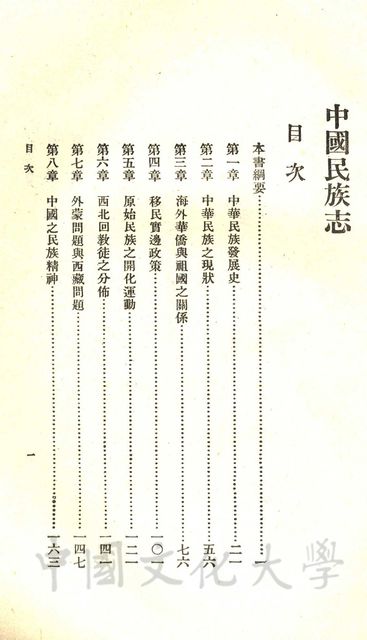 中國民族志
目次
本書綱要……一
第一章 中華民族發展史……二一
第二章 中華民族之現狀……五六
第三章 海外華僑與祖國之關係……七六
第四章 移民實邊政策……一〇一
第五章 原始民族之開化運動……一二一
第六章 西北回教徒之分佈……一四一
第七章 外蒙問題與西藏問題……一四七
第八章 中國之民族精神……一六三
目次 一
中國文化大學